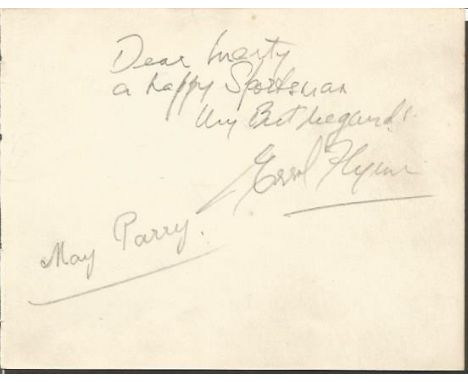 Dear Marty
a happy Sportsman
My Best regards.
Errol Flynn
May Parry.